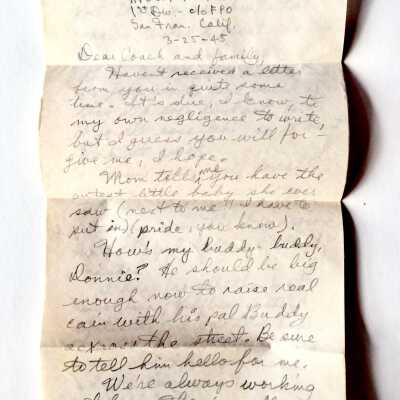 1st Div - c/o FPO
San Fran. Calif.
3-25-45
Dear Coach and family,
Haven't received a letter
from you in quite some
time. It's due, I know, to
my own negligence to write,
but I guess you will for-
give me, I hope.
Mom tells me you have the
cutest little baby she ever
saw (next to me "I have to
put in) (pride, you know).
How's my buddy-buddy,
Donnie? He should be big
enough now to raise real
cain with his pal Buddy
across the street. Be sure
to tell him hello for me.
We're always working